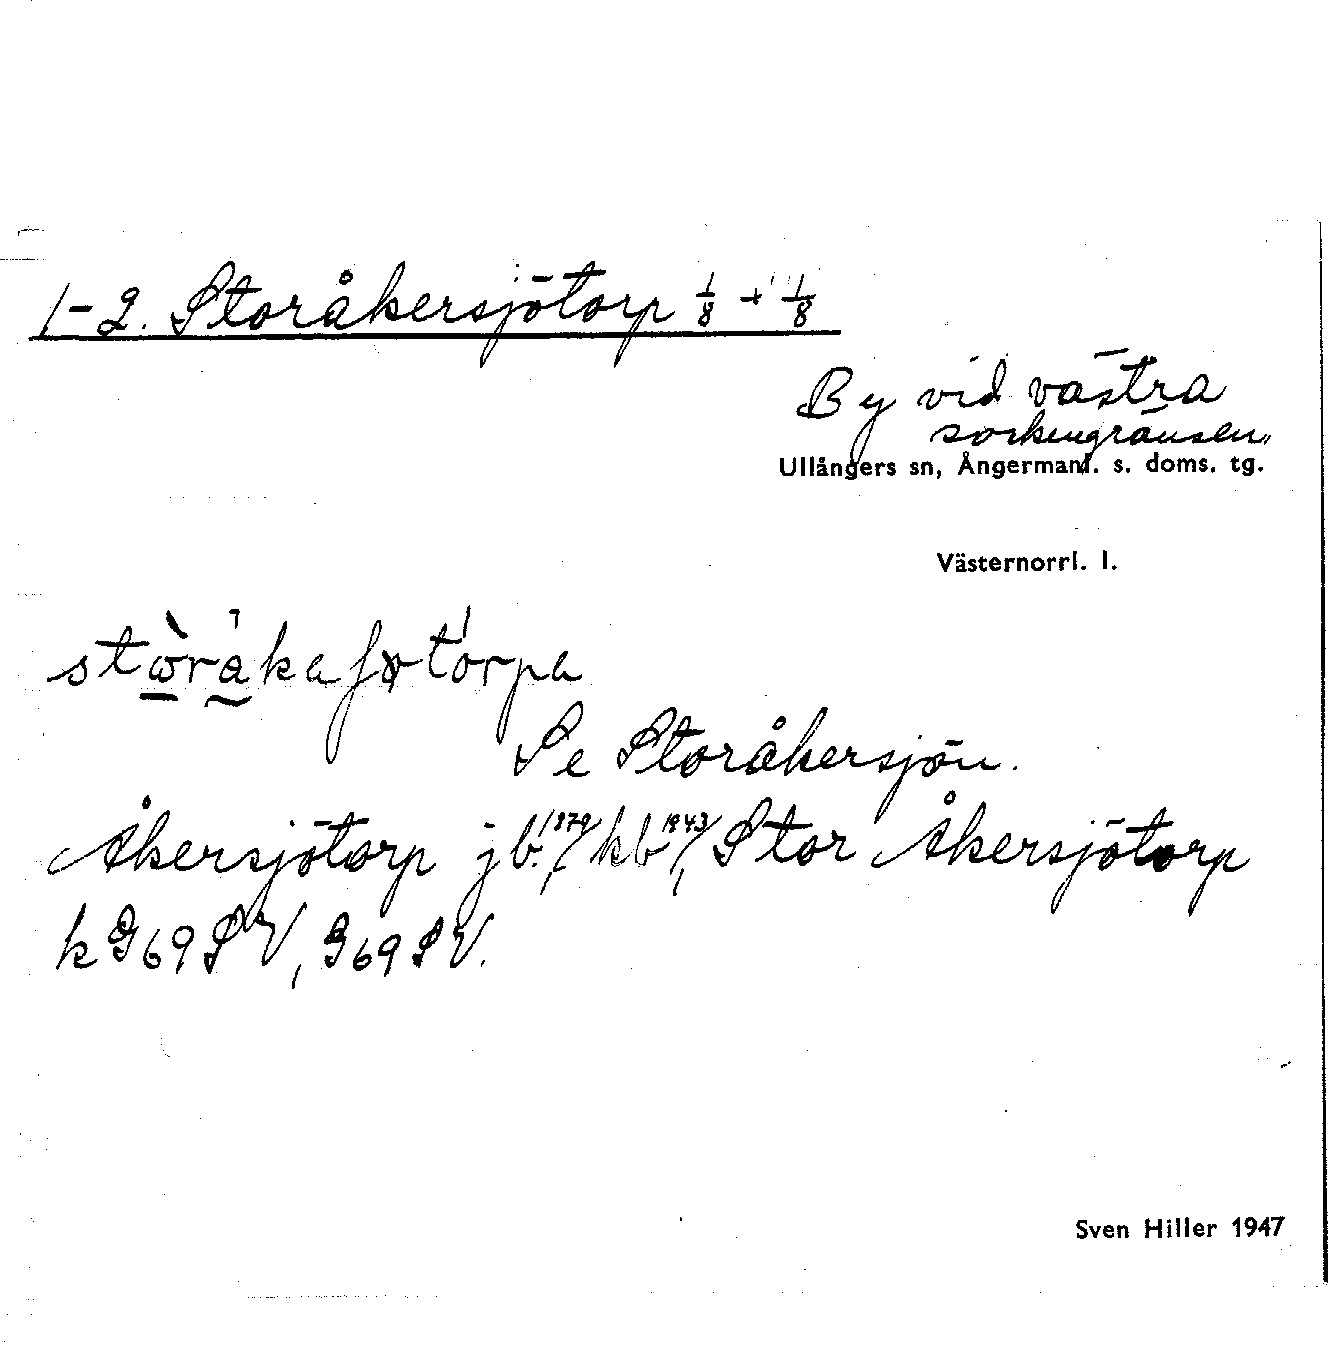 1-2. Storåkersjötorp 1/8 + 1/8
By vid västra
sockengränsen
Ullångers sn, Ångermanl. s. doms. tg.
Västernorrl. l.
Se Storåkersjön.
Åkersjötorp jb. 1879, kb 1943, Stor Åkersjötorp
k G69SV, G69SV.
Sven Hiller 1947